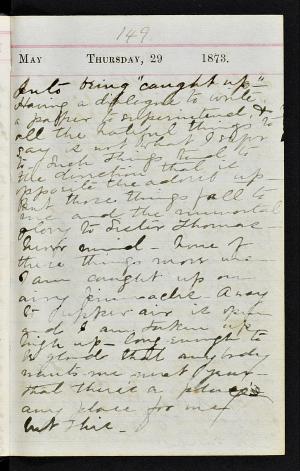 149.
MAY THURSDAY, 29 1873.
Into being "caught up"—
Having a dialogue to write,
a paper to superintend, &
all the hateful things to
say is not what I
to. Such things tend to
the direction that is
opposite the adverb up—
But those things fall to
me and the immortal
glory to Sister Thomas—
Never mind— None of
these things move me—
I am caught up on
any
upper air is open
and I am taken up
high up— long enough to
be glad that anybody
wants me next year—
that there's a place
any place for me
but this.—